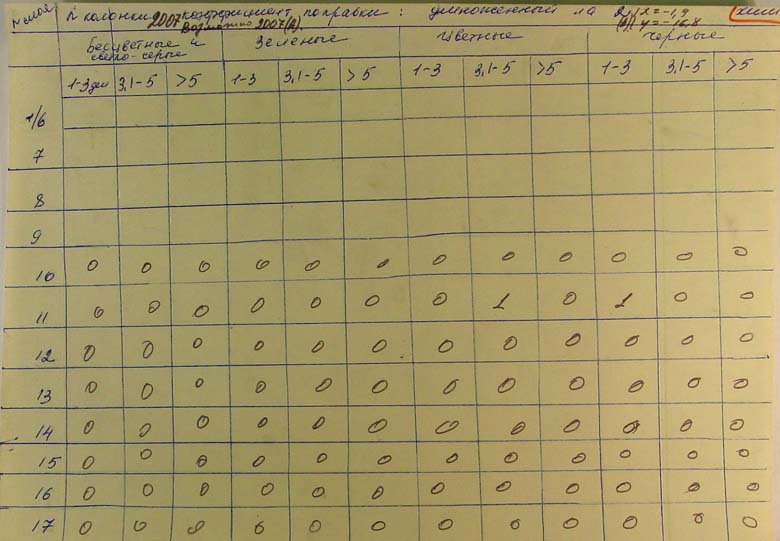 N слоя N колонки 2007 коэффициент поправки : умноженный на 2, x = -1,9
Возможно 2007(2). y = -16,8
Бесцветные и Зеленые Цветные Черные
светло-серые
1-3 3,1-5 >5 1-3 3,1-5 >5 1-3 3,1-5 >5 1-3 3,1-5 >5
7
8
9
10 0 0 0 0 0 0 0 0 0 0 0 0
11 0 0 0 0 0 0 0 1 0 1 0 0
12 0 0 0 0 0 0 0 0 0 0 0 0
13 0 0 0 0 0 0 0 0 0 0 0 0
14 0 0 0 0 0 0 0 0 0 0 0 0
15 0 0 0 0 0 0 0 0 0 0 0 0
16 0 0 0 0 0 0 0 0 0 0 0 0
17 0 0 0 0 0 0 0 0 0 0 0 0